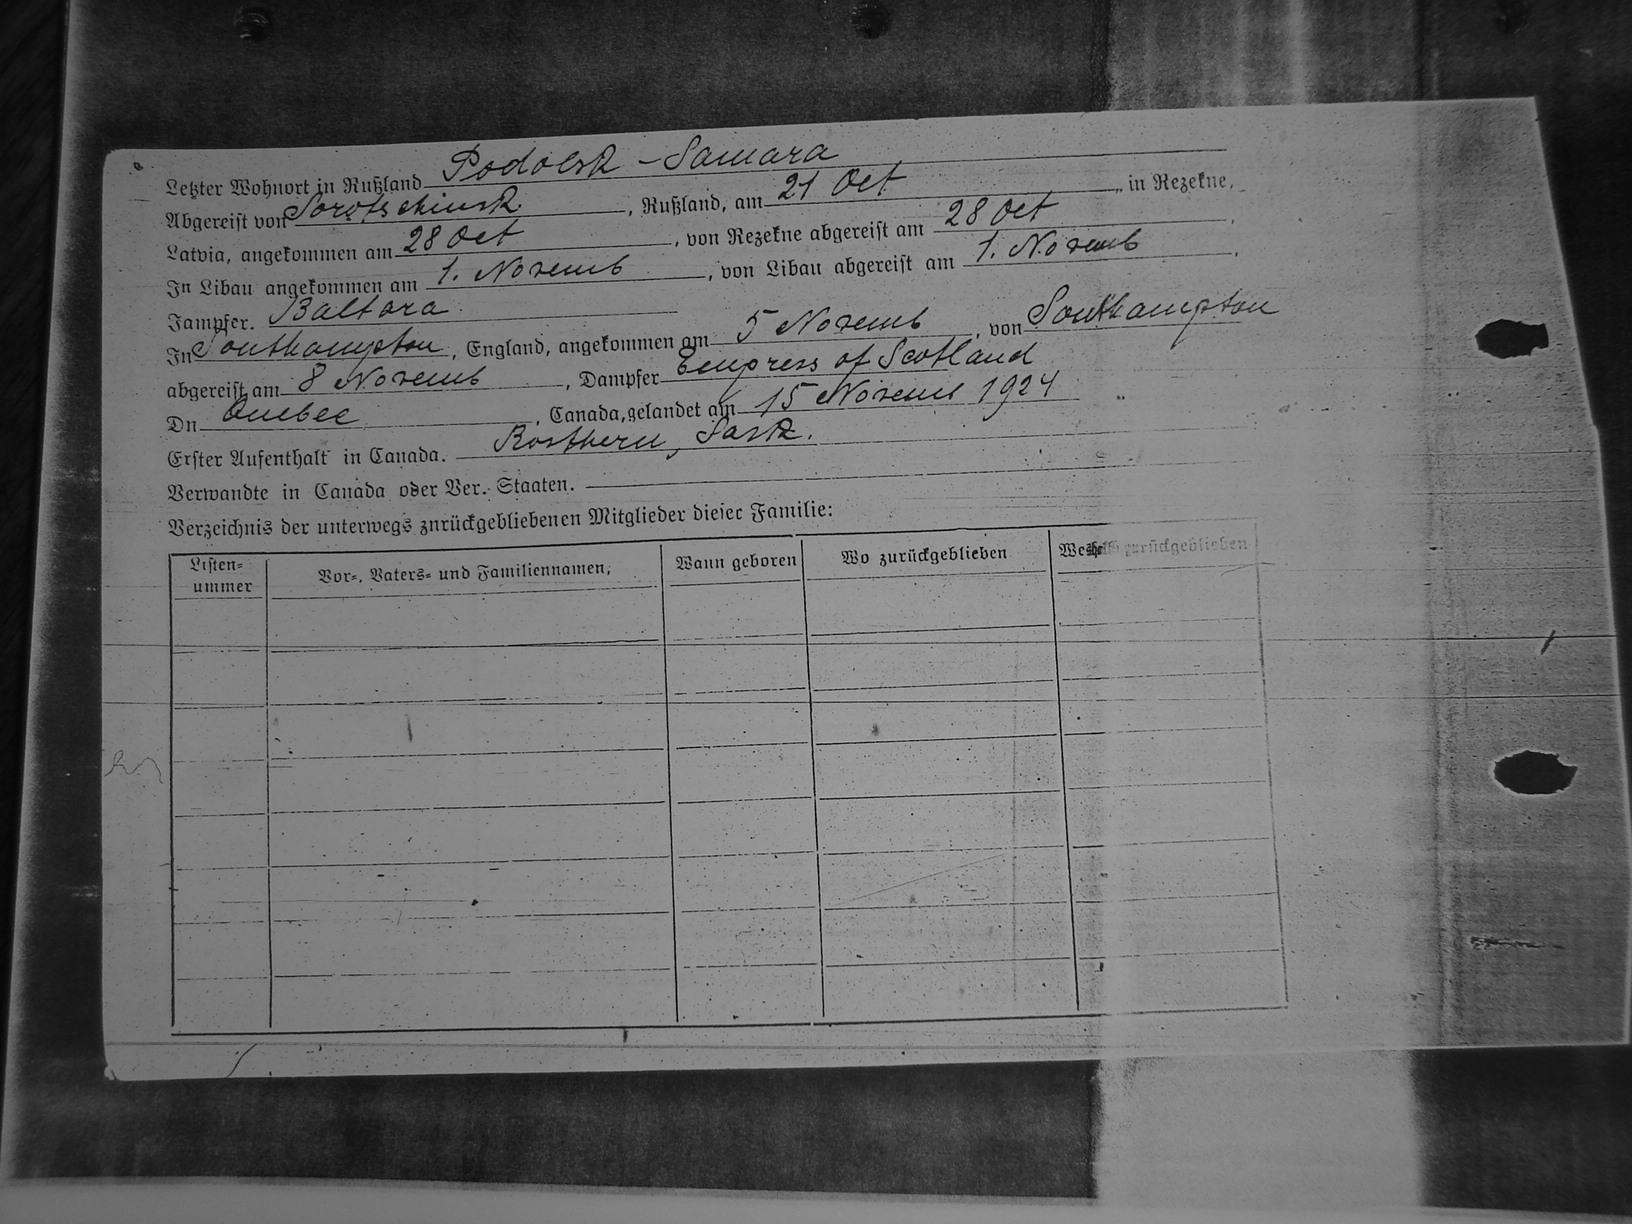 Letzter Wohnort in Rußland Podolsk - Samara
Abgereist von Sorotschinsk, Rußland, am 21 Oct, in Rezekne,
Latvia, angekommen am 28 Oct, von Rezekne abgereist am 28 Oct
In Libau angekommen am 1. Novemb, von Libau abgereist am 1. Novemb.
Jampfer. Baltara
In Southampton, England, angekommen am 5 Novemb, von Southampton
abgereist am 8 Novemb, Dampfer Empress of Scotland
Dn Quebec, Canada, gelandet am 15 Novem 1924
Erster Aufenthalt in Canada. Rosthern, Sask.
Verwandte in Canada oder Ver. Staaten.
Verzeichnis der unterwegs znrückgebliebenen Mitglieder diesec Familie:
Listen-ummer Vor-, Vaters- und Familiennamen, Wann geboren Wo zurückgeblieben Weshalb zurückgeblieben